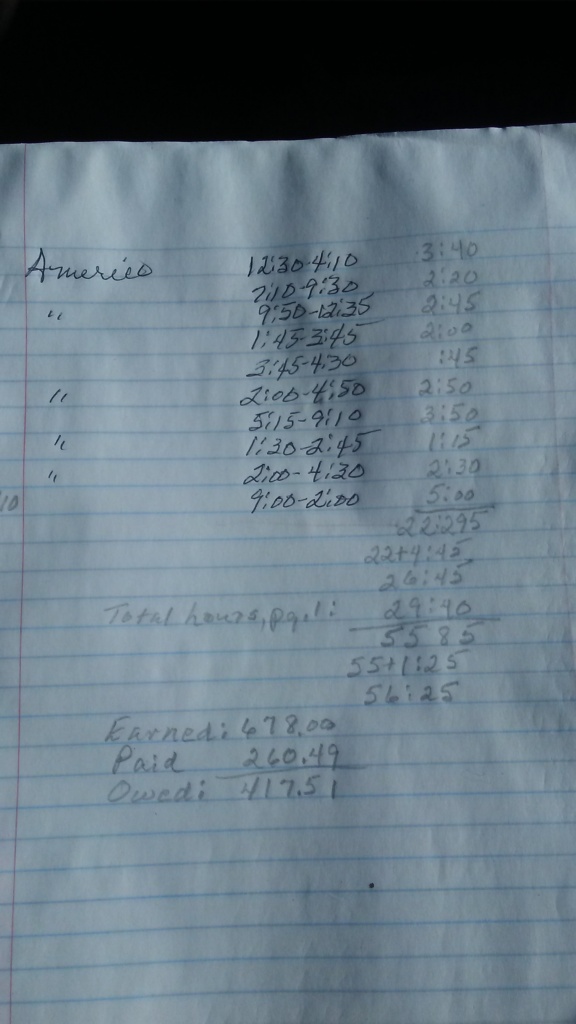 Americo 12:30-4:10 3:40
7:10-9:30 2:20
" 9:50-12:35 2:45
1:45-3:45 2:00
3:45-4:30 :45
" 2:00-4:50 2:50
5:15-9:10 3:50
" 1:30-2:45 1:15
" 2:00-4:30 2:30
10 9:00-2:00 5:00
22:295
22+4:45
26:45
Total hours, pg.1: 29:40
55 85
55+1:25
56:25
Earned: 678.00
Paid 260.49
Owed: 417.51